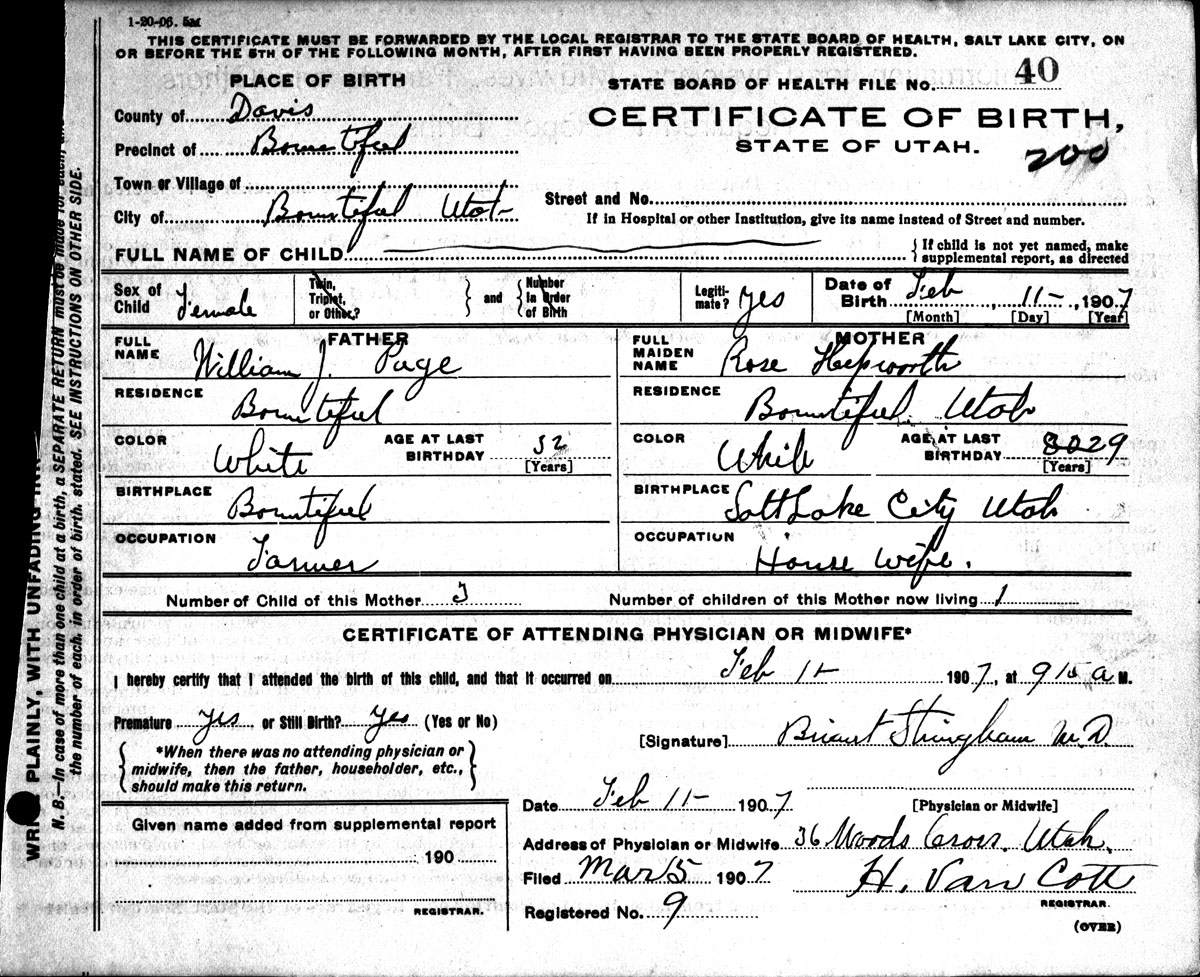 1-20-06. 5M
THIS CERTIFICATE MUST BE FORWARDED BY THE LOCAL REGISTRAR TO THE STATE BOARD OF HEALTH, SALT LAKE CITY, ON
OR BEFORE THE 5TH OF THE FOLLOWING MONTH, AFTER FIRST HAVING BEEN PROPERLY REGISTERED.
PLACE OF BIRTH
STATE BOARD OF HEALTH FILE No. 40
County of Davis
CERTIFICATE OF BIRTH,
Precinct of Bountiful
STATE OF UTAH.
200
Town or Village of
Street and No.
City of Bountiful Utah
If in Hospital or other Institution, give its name instead of Street and number.
FULL NAME OF CHILD
{If child is not yet named, make
supplemental report, as directed
Sex of Child Female
Twin, Triplet, or Other?
} and {
Number In Order of Birth
Legiti-mate? yes
Date of Birth Feb 11-, 1907
[Month] [Day] [Year]
FATHER
FULL NAME William J. Page
RESIDENCE Bountiful
COLOR White
AGE AT LAST BIRTHDAY 32
[Years]
BIRTHPLACE Bountiful
OCCUPATION Farmer
MOTHER
FULL MAIDEN NAME Rose Hepworth
RESIDENCE Bountiful. Utah
COLOR White
AGE AT LAST BIRTHDAY 29
[Years]
BIRTHPLACE Salt Lake City Utah
OCCUPATION House wife.
Number of Child of this Mother 3
Number of children of this Mother now living 1
CERTIFICATE OF ATTENDING PHYSICIAN OR MIDWIFE*
I hereby certify that I attended the birth of this child, and that it occurred on Feb 11- 1907, at 915 a M.
Premature yes or Still Birth? yes (Yes or No)
[Signature] Briant Stringham M.D.
{*When there was no attending physician or
midwife, then the father, householder, etc.,
should make this return.}
Date Feb 11- 1907
[Physician or Midwife]
Given name added from supplemental report
190
REGISTRAR.
Address of Physician or Midwife 36 Woods Cross. Utah.
Filed Mar 5 1907 H. Van Cott
REGISTRAR.
Registered No. 9
(OVER)
WRITE PLAINLY, WITH UNFADING INK
N. B.—In case of more than one child at a birth, a SEPARATE RETURN must be made for each, and
the number of each, in order of birth, stated. SEE INSTRUCTIONS ON OTHER SIDE.